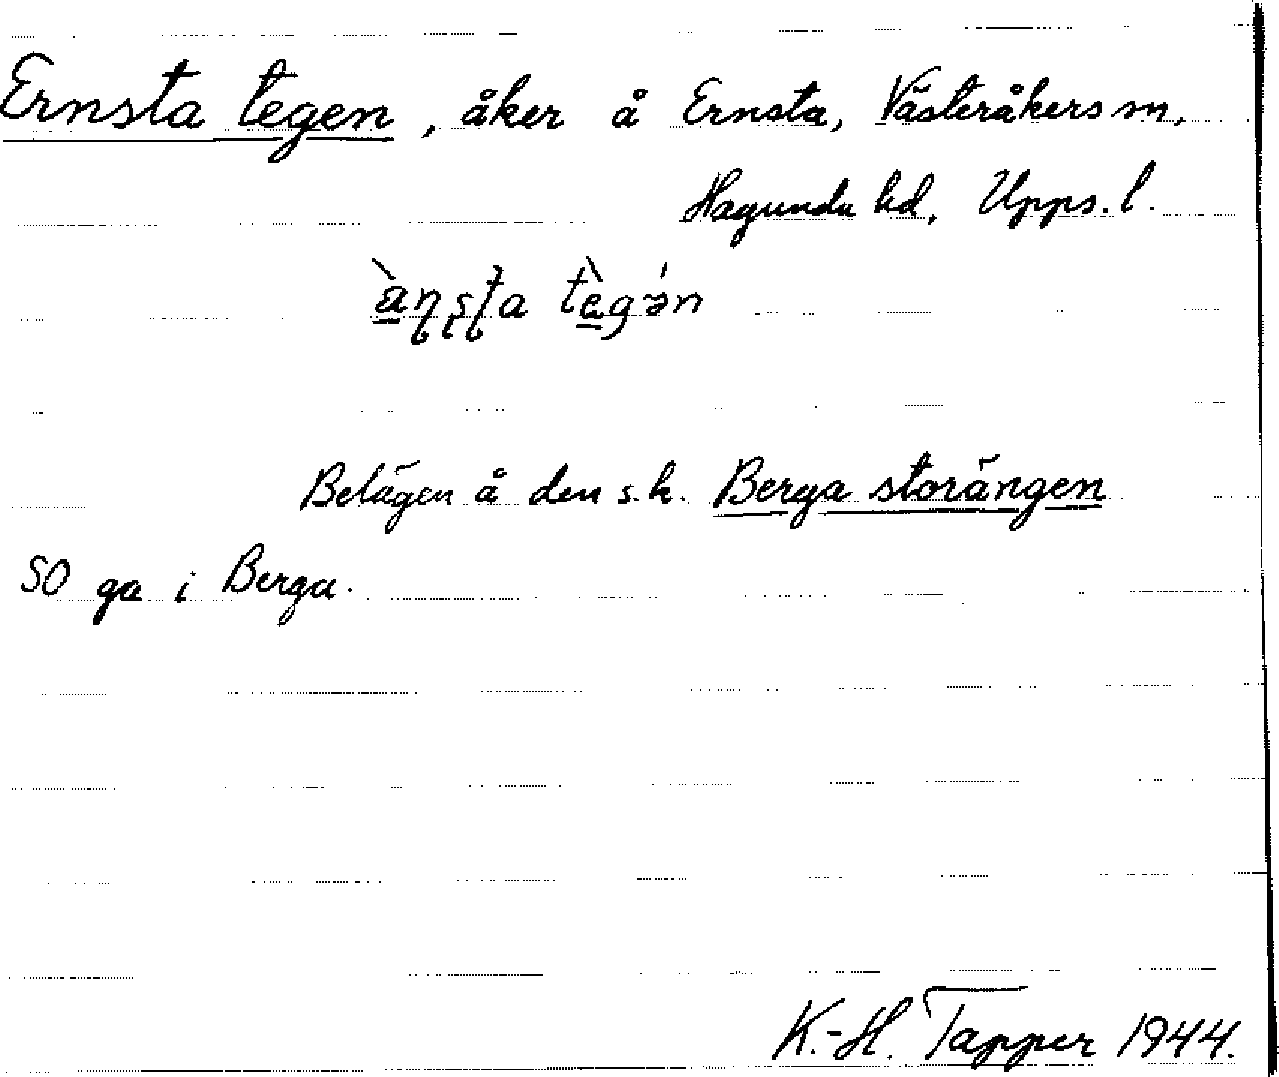 Ernsta tegen, åker å Ernsta, Västeråkers sn,
Hagunda hd, Upps. l.
Belägen å den s.k. Berga storängen
SO ga i Berga.
K.-H. Tapper 1944.